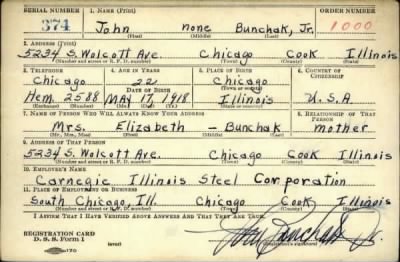 SERIAL NUMBER 1. NAME (Print) ORDER NUMBER
374 John none Bunchak, Jr. 1000
(First) (Middle) (Last)
2. ADDRESS (Print)
5234 S. Wolcott Ave. Chicago Cook Illinois
(Number and street or R. F. D. number) (Town) (County) (State)
3. TELEPHONE 4. AGE IN YEARS 5. PLACE OF BIRTH 6. COUNTRY OF CITIZENSHIP
Chicago 22 Chicago
DATE OF BIRTH (Town or county)
Hem. 2588 May 17, 1918 Illinois U.S.A.
(Exchange) (Number) (Mo.) (Day) (Yr.) (State or country)
7. NAME OF PERSON WHO WILL ALWAYS KNOW YOUR ADDRESS 8. RELATIONSHIP OF THAT PERSON
Mrs. Elizabeth Bunchak mother
(Mr., Mrs., Miss) (First) (Middle) (Last)
9. ADDRESS OF THAT PERSON
5234 S. Wolcott Ave. Chicago Cook Illinois
(Number and street or R. F. D. number) (Town) (County) (State)
10. EMPLOYER'S NAME
Carnegie Illinois Steel Corporation
11. PLACE OF EMPLOYMENT OR BUSINESS
South Chicago, Ill. Chicago Cook Illinois
(Number and street or R. F. D. number) (Town) (County) (State)
I AFFIRM THAT I HAVE VERIFIED ABOVE ANSWERS AND THAT THEY ARE TRUE.
REGISTRATION CARD
D. S. S. Form 1 John Bunchak Jr.
(over) (Registrant's signature)